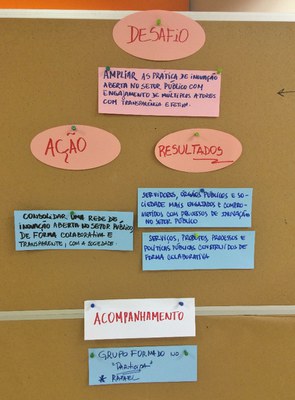 DESAFIO
AMPLIAR AS PRÁTICA DE INOVAÇÃO
ABERTA NO SETOR PÚBLICO COM
ENGAJAMENTO DE MÚLTIPLOS ATORES
COM TRANSPARÊNCIA EFETIVA.
AÇÃO
RESULTADOS
CONSOLIDAR UMA REDE DE
INOVAÇÃO ABERTA NO SETOR PÚBLICO,
DE FORMA COLABORATIVA E
TRANSPARENTE, COM A SOCIEDADE.
SERVIDORES, ÓRGÃOS PÚBLICOS E SO-
CIEDADE MAIS ENGAJADOS E COMPRO-
METIDOS COM PROCESSOS DE INOVAÇÃO
NO SETOR PÚBLICO
SERVIÇOS, PROJETOS, PROCESSOS E
POLÍTICAS PÚBLICAS CONSTRUÍDOS DE
FORMA COLABORATIVA
ACOMPANHAMENTO
GRUPO FORMADO NO
"Participa"
* RAFAEL